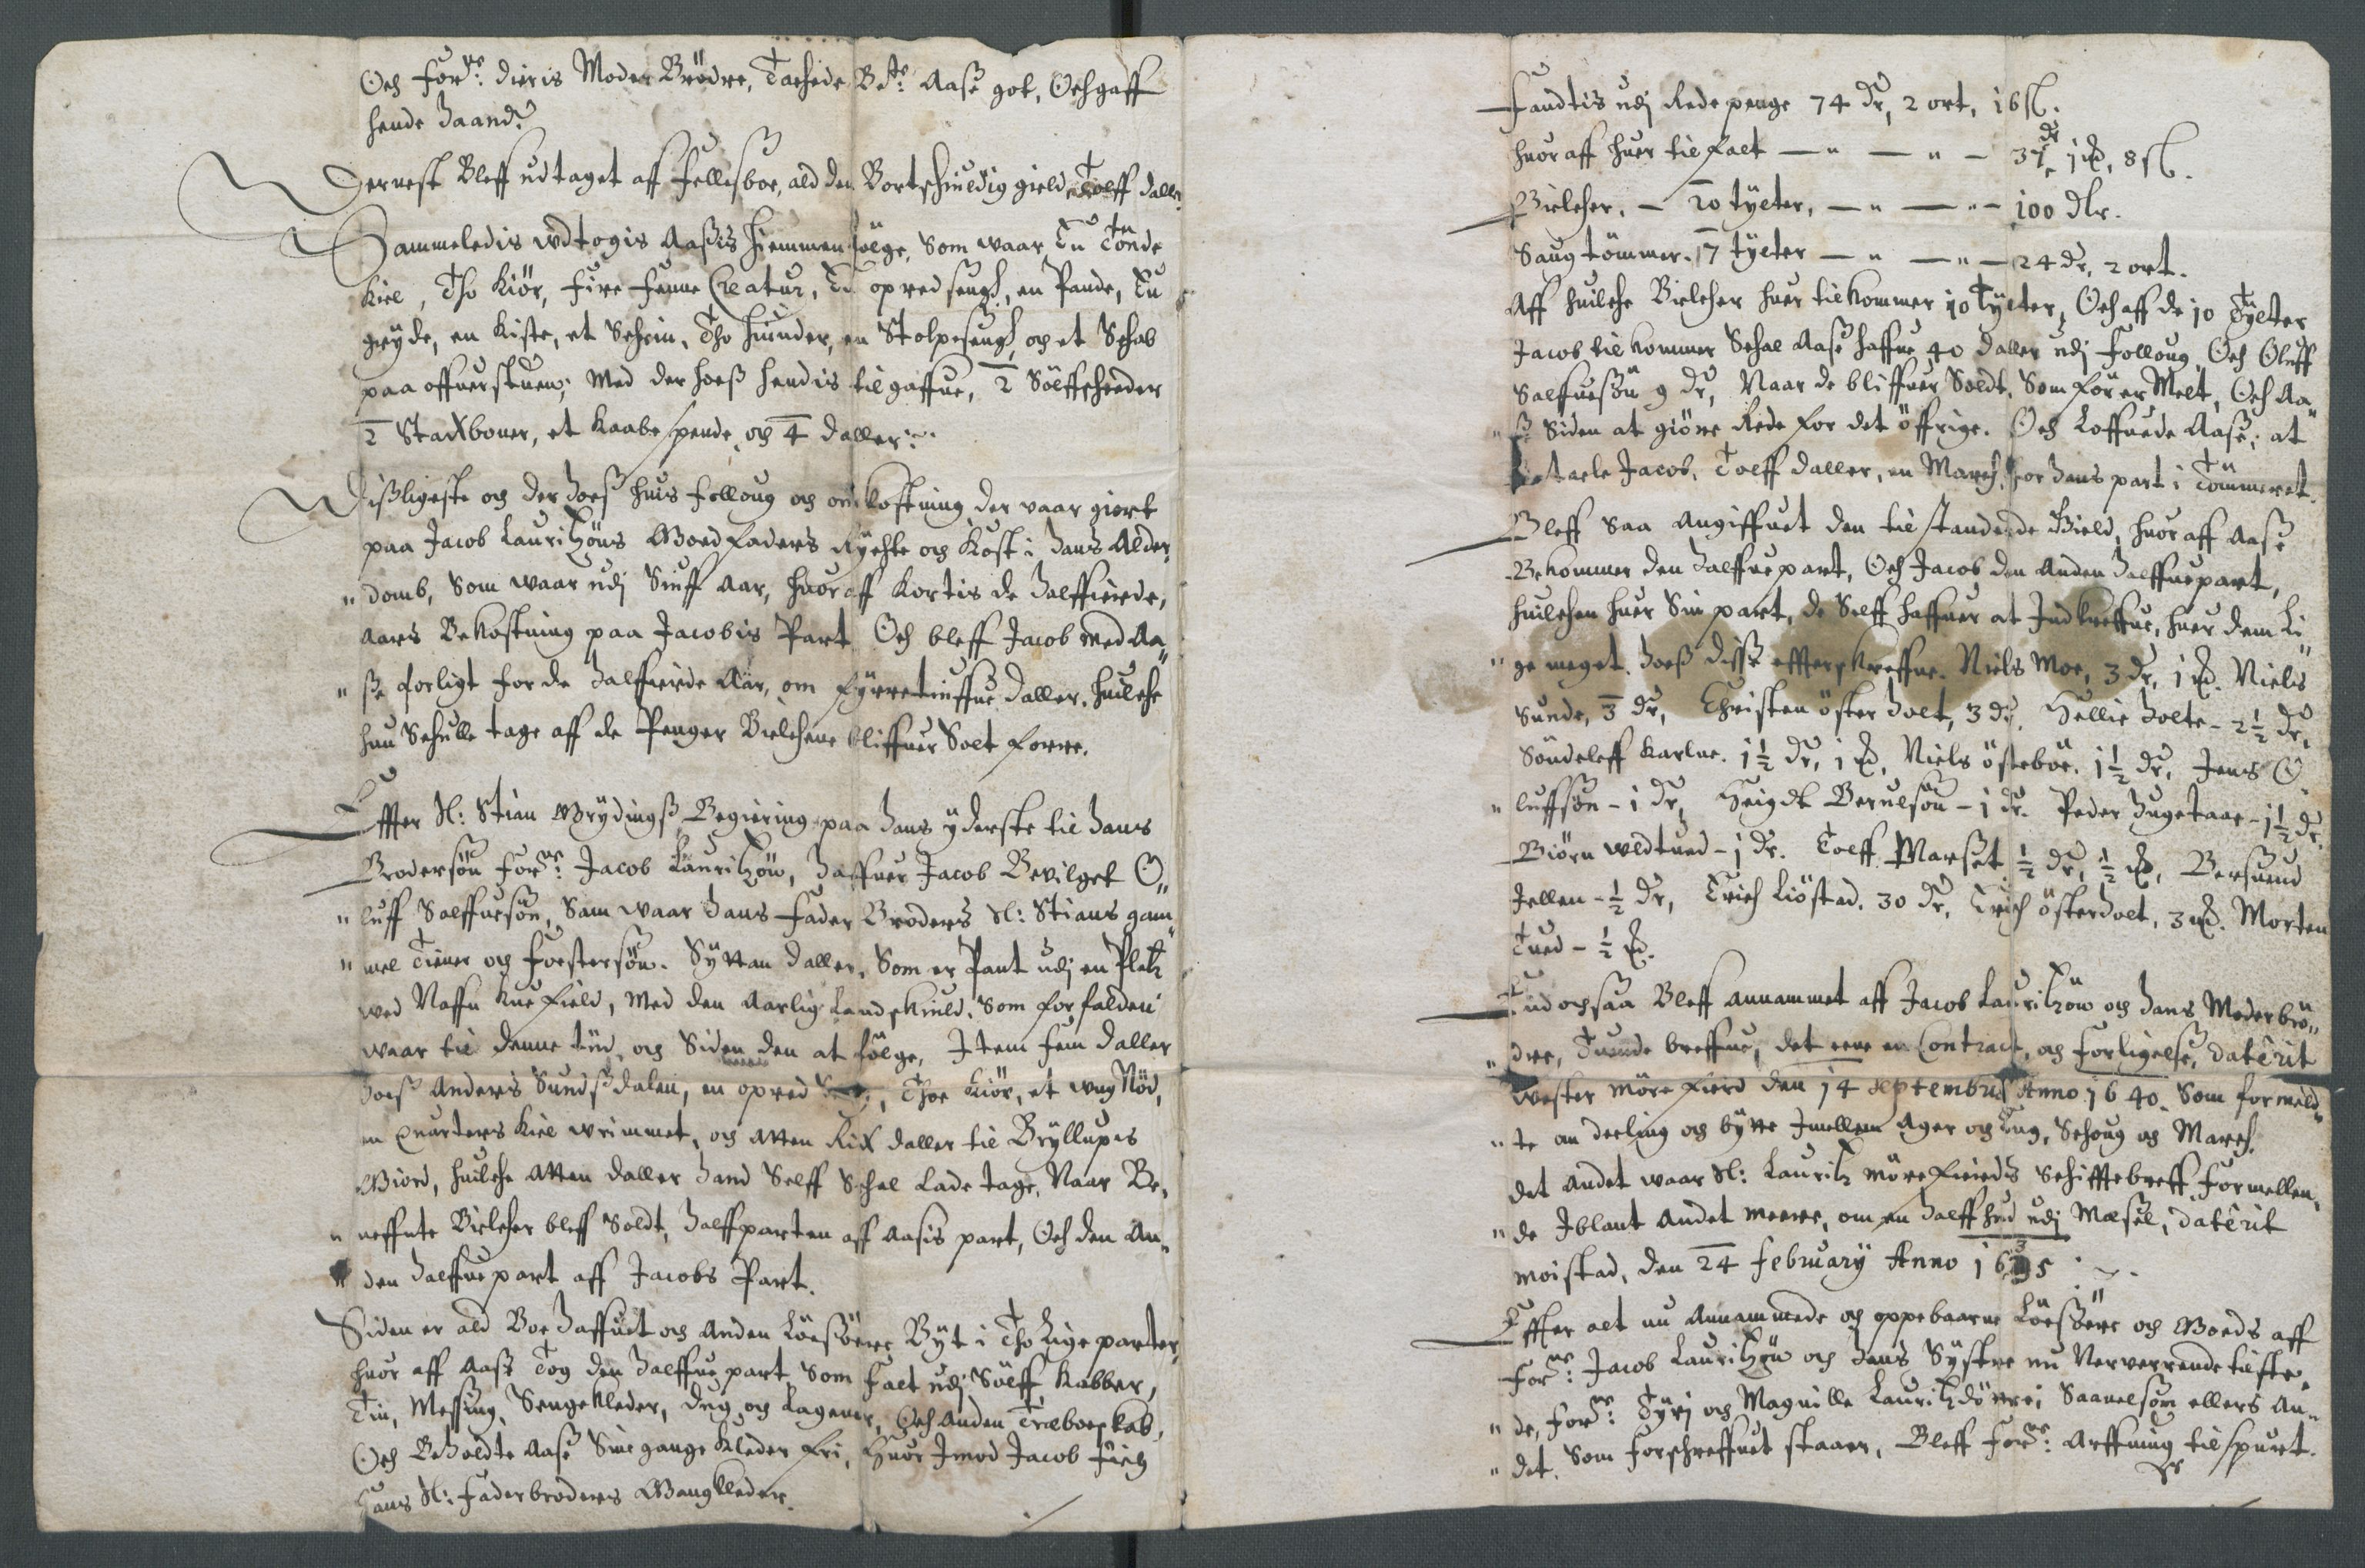 Och Forne: dieris Moder Brødre, Tachede Bete: Aase got, Och gaff
hende Haand.
Dernest Bleff udtaget aff Fellisboe, ald den Bortschuldig gield, Tolff daller.
Sammeledis udtogis Aasis hiemmenfölge, Som waar, Tu Tönde
Kiel, Tho Kiör, Fire Fenne Creatur, Tu opred seng, en Pande, Tu
gryde, en Kiste, et Schrin, Tho hunder, en Stolpeseng, och et Schab
paa offuerstuen; Med der hoes hendis tilgaffue, 2 Sölffscheeder
2 Stackboner, et Kaabespende, och 4 daller.
Disligeste och der hoes huis folloug och omkostning der vaar giort
paa Jacob Lauritzöns Goedfaders Rychte och Kost i hans Alder¸
„ domb, Som waar udj Siuff Aar, huoraff Kortis de halffierde,
Aars Bekostning paa Jacobis Part. Och bleff Jacob med Aa„
„ se forligt for de halffierde Aar, om Fyrretiuffue daller, huilche
hun Schulle tage aff de Penger Bielchene bliffuer Solt forre.
Effter Sl: Stian Grydings Begiering paa hans yderste til hans
Brodersön Forne: Jacob Lauritzön, Haffuer Jacob Bevilget O„
„ luff Salffuesön, Sam waar hans Fader Broders Sl: Stians gam„
„ mel Tiener och Forstersön. Syttan daller, Som er Pant udj en Platz
wed Naffn Knefield, Med den Aarlig Landskuld, Som forfalden
waar til denne tiid, och Siden den at fölge, Item Fem daller
hoes Anders Sundsdalen, en opred , Thoe Kiör, et ung Nöd,
en Quarters Kiel wrimmet, och Atten Rix daller til Bryllupes
Giord, huilche Atten daller hand Selff Schal Lade tage, Naar Be„
„ neffnte Bielcher bleff Soldt, halffparten aff Aasis part, Och den An„
„ den halffuepart aff Jacobs Part.
Siden er ald Boe haffuet och Anden Löesöere Byt i Tho Lige parter,
huor aff Aase Tog den halffue part, Som Falt udj Sölff, Kabber,
Tin, Messing, Sengekleder, Dug och Lagener, Och Anden Træboeskab,
Och Beholdte Aase Sine gange Kleder fri, Huor Imod Jacob Fich
Hans Sl: Faderbroders Gangkleder.
Fandtis udj Rede penge 74 dr, 2 ort, 16 sl.
huor aff huer tilfalt — „ — „ — 37 dr, 1 , 8 sl.
Bielcher, — 20 tylter, — „ — „ — 100 dlr.
Saug tömmer. 17 tylter — „ — „ — 24 dr, 2 ort.
Aff huilche Bielcher huer tilkommer 10 Tylter, Och aff de 10 Tylter
Jacob tilkommer Schal Aase haffue 40 daller udj Folloug, Och Oluff
Salffuesön 9 dr, Naar de bliffuer Soldt, Som för er Melt, Och Aa„
„ se Siden at giöre Rede for det öffrige. Och Loffuede Aase, at
betaele Jacob, Tolff daller, en March, for hans part i Tömmeret.
Bleff saa Angiffuet den tilstandende Gield, huoraff Aase
Bekommer den halffue part, Och Jacob den Anden halffuepart,
huilchen huer Sin part, de Selff haffuer at Indkreffue, huer dem li„
„ ge meget. hoes disse effterskreffne. Niels Moe, 3 dr, 1 . Niels
Sunde, 3 dr, Christen österholt, 3 dr. Hellie Holte - 2 1/2 dr,
Söndeleff Karlne. 1 1/2 dr, 1 , Niels östeböe. 1 1/2 dr, Jens O„
„ luffsön - 1 dr, Berulsön - 1 dr. Peder hugetaae - 1 1/2 dr.
Biörn - 1 dr. Tolff Marset 1/2 dr, 1/2 , Bersuend
Jellen - 1/2 dr, Erich Liöstad. 30 dr, Erich österholt, 3 . Morten
Tued - 1/2 .
End ochsaa Bleff Annammet aff Jacob Lauritzön och hans Moderbrö„
„ dre, Tuende breffue, det eene en Contract, och Forligelse, daterit
wester möre Fierd den 14 septembris Anno 1640. Som formeld„
„ te om deeling och bytte Imellem Ager och Eng, Schoug och March.
det Andet waar Sl: Lauritz mörefierds Schifftebreff, Formellen„
„ de Iblant Andet meere, om en halff hud udj Mæsel, daterit
moistad, den 24 February Anno 1635
Effter alt nu Annammede och oppebaarne Löesöere och Goeds aff
Forne: Jacob Lauritzön och hans Systre nu Nerverrende tilste„
„ de, Forne: Tyri och Magnille Lauritzdötre, Saauelsom ellers An„
„ det, Som Forschreffuet staaer, Bleff Forne: Arffuing tilspurt.